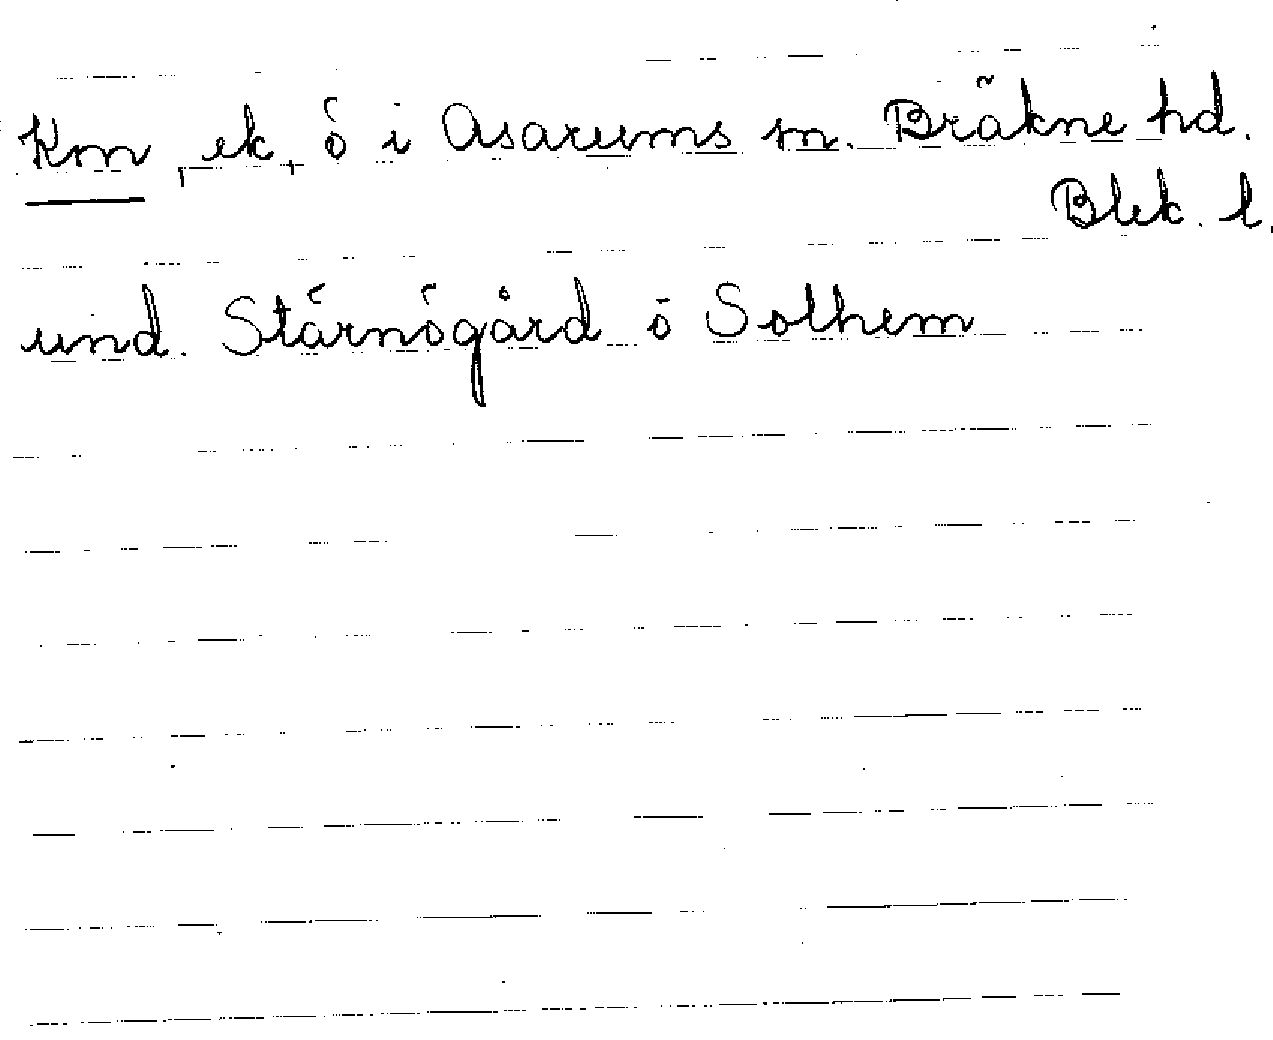 Km, ek, ö i Asarums sn. Bräkne hd.
Blek. l.
und. Stärnögård o Solhem